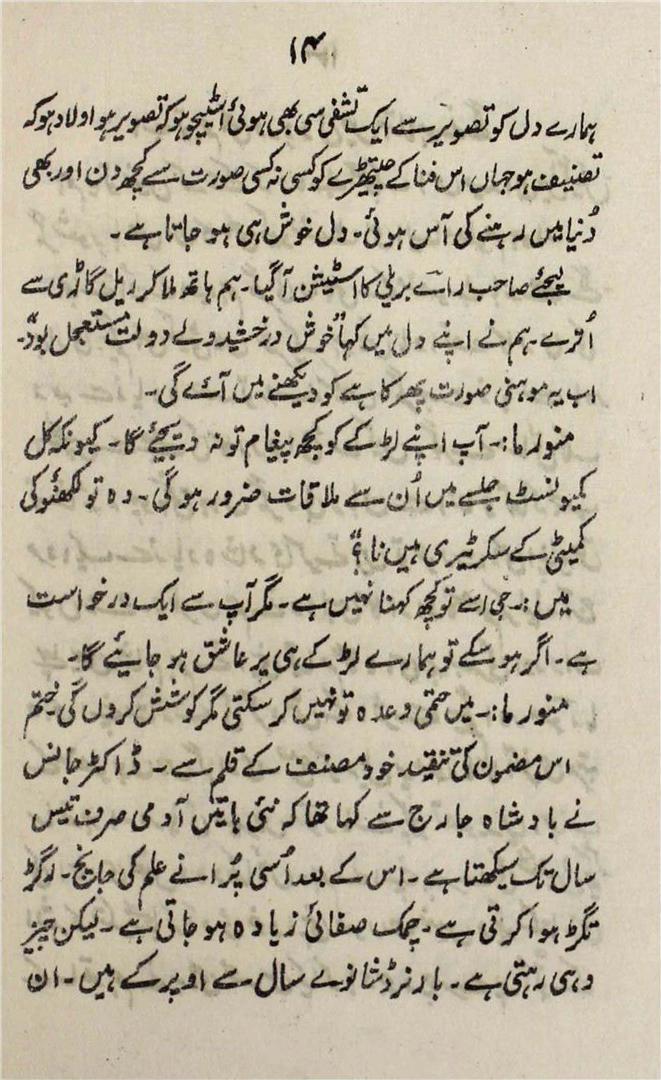 ۱۴
ہمارے دل کو تصویر سے ایک تشفی سی بھی ہوئی اسٹیچو ہو کہ تصویر ہو اولاد ہو کہ
تصنیف ہو جہاں اس فنا کے چیتھڑے کو کسی نہ کسی صورت سے کچھ دن اور بھی
دُنیا میں رہنے کی آس ہوئی۔ دل خوش ہی ہو جاتا ہے۔
لیجئے صاحب رائے بریلی کا اسٹیشن آگیا۔ ہم ہاتھ ملا کر ریل گاڑی سے
اُترے۔ ہم نے اپنے دل میں کہا "خوش درخشید ولے دولت مستعجل بود"۔
اب یہ موہنی صورت پھر کاہے کو دیکھنے میں آئے گی۔
منورما:۔ آپ اپنے لڑکے کو کچھ پیغام تو نہ دیجئے گا۔ کیونکہ کل
کمیونسٹ جلسے میں اُن سے ملاقات ضرور ہوگی۔ وہ تو لکھنؤ کی
کمیٹی کے سکرٹیری ہیں نا؟"
میں:۔ جی اسے تو کچھ کہنا نہیں ہے۔ مگر آپ سے ایک درخواست
ہے۔ اگر ہو سکے تو ہمارے لڑکے ہی پر عاشق ہو جایئے گا۔
منورما:۔ میں حتمی وعدہ تو نہیں کر سکتی مگر کوشش کروں گی۔ ختم
اس مضمون کی تنقید خود مصنف کے قلم سے۔ ڈاکٹر جانس
نے بادشاہ جارج سے کہا تھا کہ نئی باتیں آدمی صرف تیس
سال تک سیکھتا ہے۔ اس کے بعد اُسی پُرانے علم کی جانچ۔ رگڑ
تگڑ ہوا کرتی ہے۔ چمک صفائی زیادہ ہو جاتی ہے۔ لیکن چیز
وہی رہتی ہے۔ بارنرڈشا نوے سال سے اوپر کے ہیں۔ ان